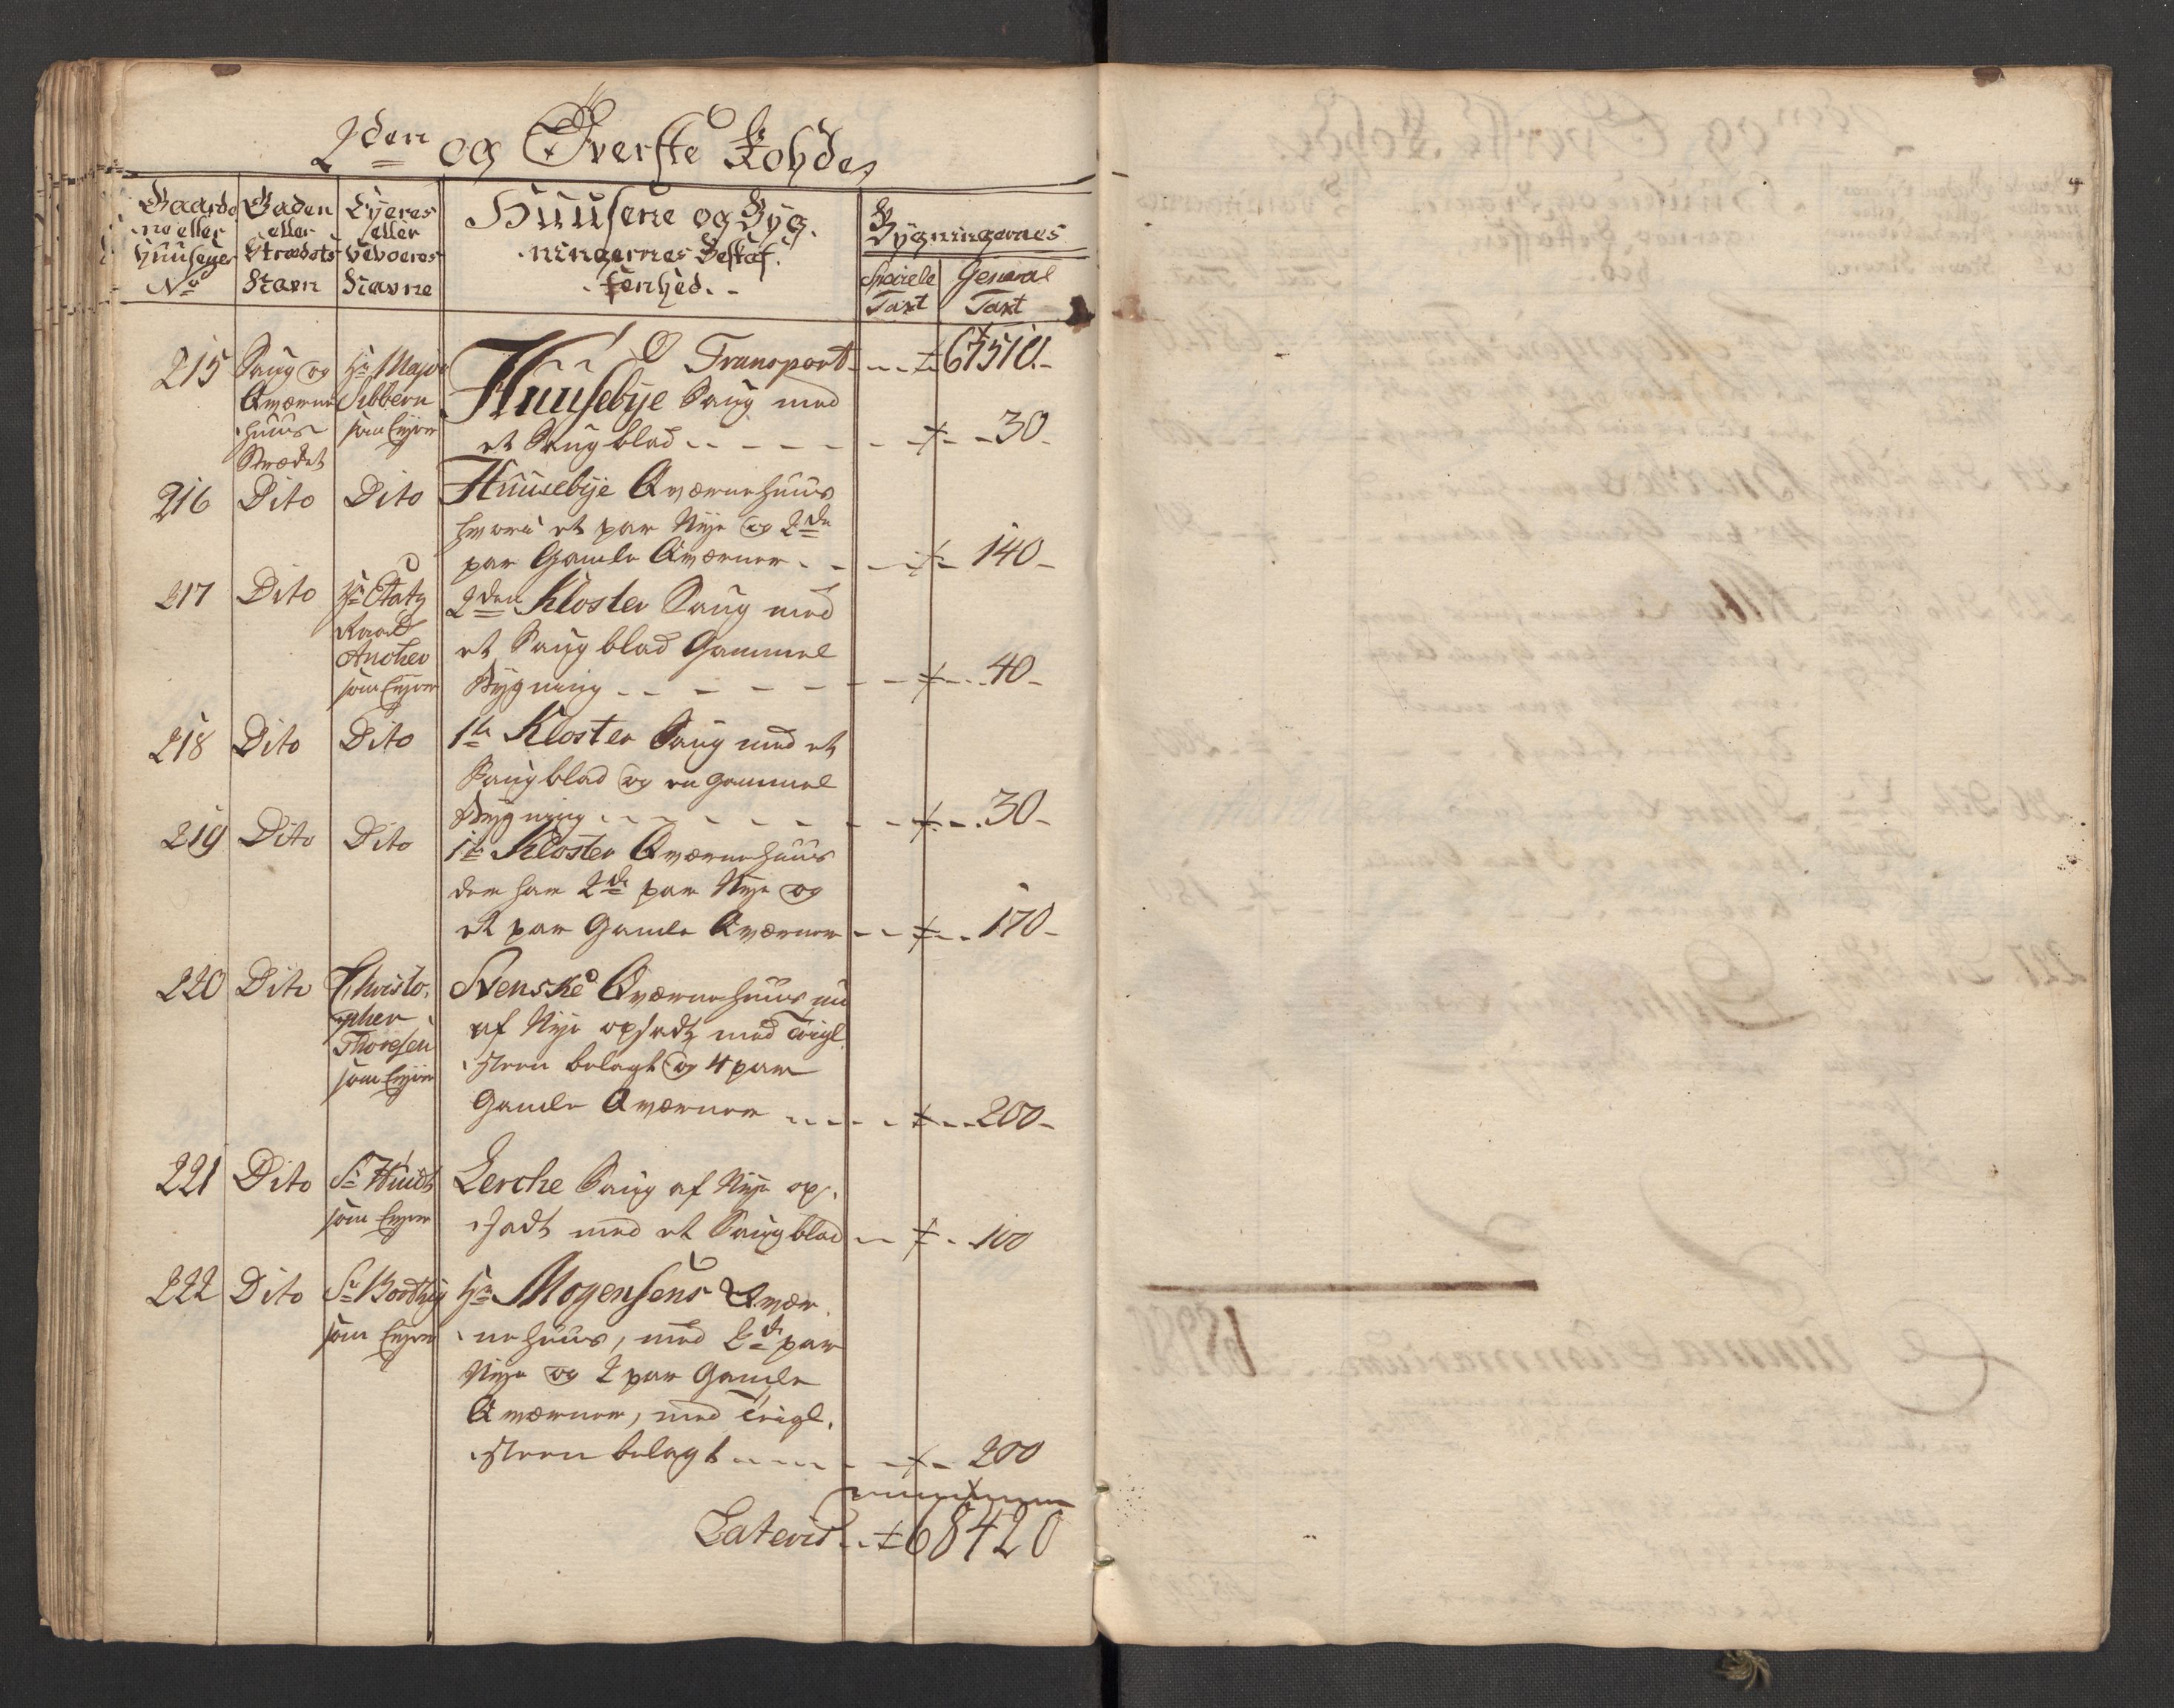 2den og Øverste Rohdes
Gaarde
ne eller
Huusenes
No
Gaden
eller
Strædets
Navn
Eyeres
eller
bevoeres
Navne
Huusene og Byg-
ningernes Beskaf-
fenhed.
Bygningernes
Speciele
Taxt
General
Taxt
Transport 67510
215 Saug og
Qværne
huus
Strædet
Hr Major
Sibbern
som Eyer
Huusebye Saug med
et Saugblad 30
216 Dito Dito Huusebye Qværnehuus
hvori et par Nye og 2de
par Gamle Qværner 140
217 Dito Hr Etatz
Raad
Ancher
som Eyer
2den Kloster Saug med
et Saugblad Gammel
Bygning 40
218 Dito Dito 1te Kloster Saug med et
Saugblad og en gammel
Bygning 30
219 Dito Dito 1te Kloster Qværnehuus
der har 2de par Nye og
et par Gamle Qværner 170
220 Dito Christo-
pher
Thoresen
som Eyer
Svenske Qværnehuus nu
af Nye opsadt med Teigl-
steen belagt og 4 par
Gamle Qværner 200
221 Dito Sr Huidt
som Eyer
Lerche Saug af Nye op-
sadt med et Saugblad 100
222 Dito Sr
som Eyer
Hr Mogensens Qvær-
nehuus, med 2de par
Nye og 2 par Gamle
Qværner, med Teigl-
steen belagt 200
Lateris 68420